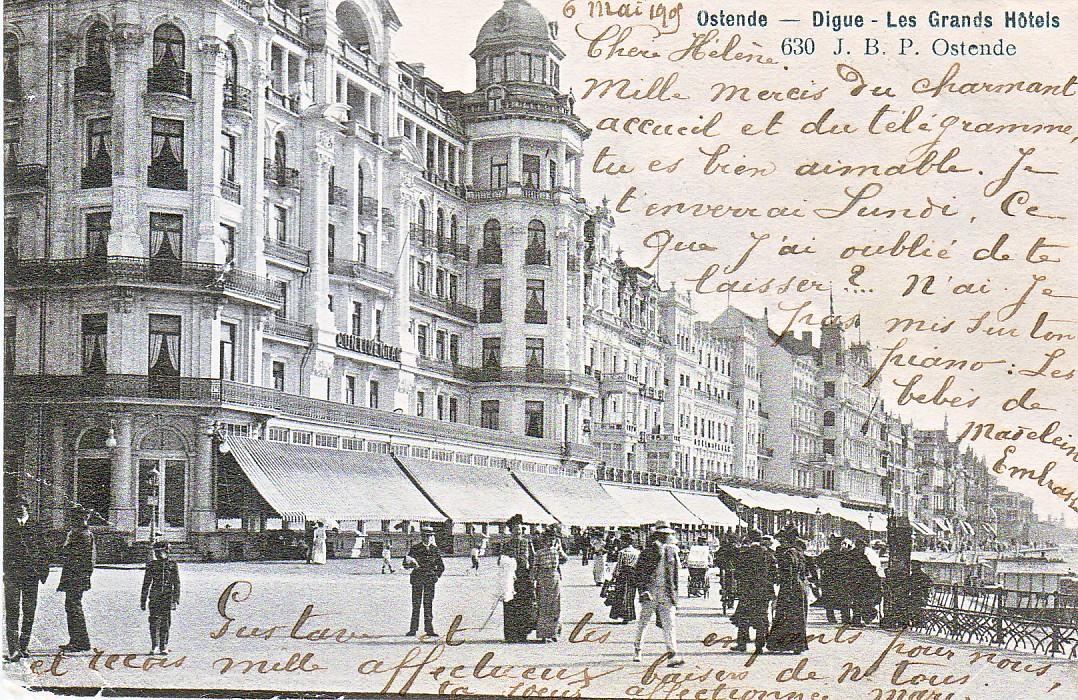 6 Mai 190
Ostende — Digue - Les Grands Hôtels
630 J. B. P. Ostende
Chère Hélène.
Mille mercis du charmant
accueil et du télégramme,
tu es bien aimable. Je
t'enverrai Lundi, Ce
que j'ai oublié de te
laisser?.. N'ai Je
pas mis sur ton
piano: Les
bébés de
Madelein
Embrass
CONTINENTAL
Gustave et tes enfants pour nous,
et reçois mille affectueux baisers de n. tous
ta soeur affectionnée